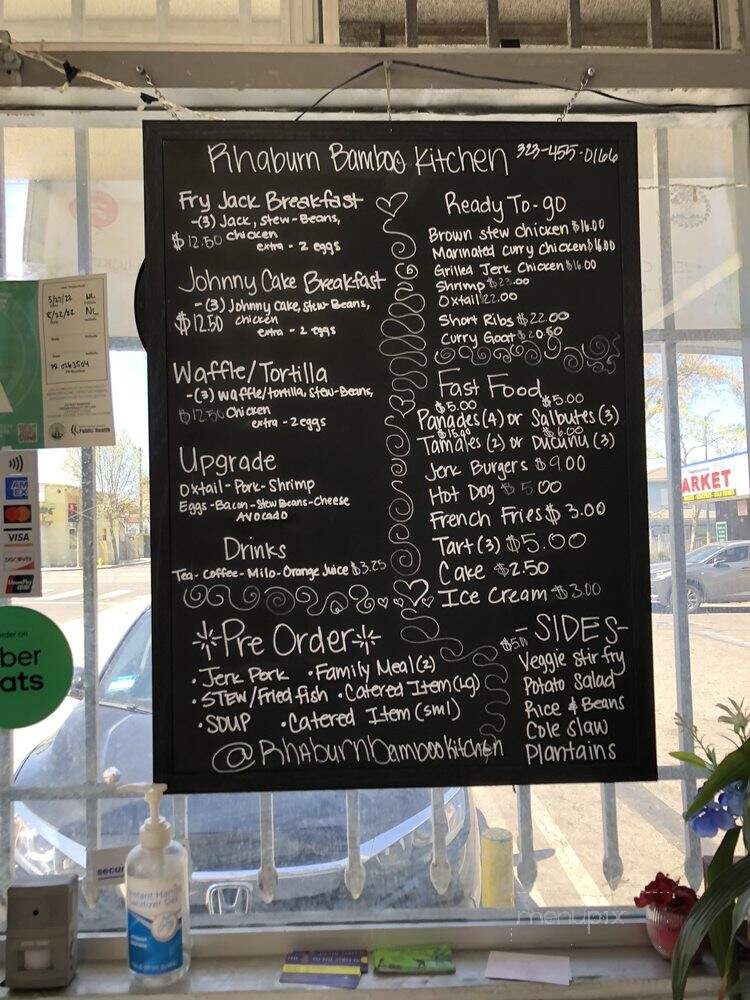 Rhaburn Bamboo Kitchen 323-455-0166
Fry Jack Breakfast
-(3) Jack, stew-Beans,
$12.50 chicken
extra - 2 eggs
Johnny Cake Breakfast
-(3) Johnny Cake, Stew-Beans,
$12.50 chicken
extra - 2 eggs
Waffle/Tortilla
-(3) waffle/tortilla, stew-Beans,
$12.50 Chicken
extra - 2 eggs
Upgrade
Oxtail-Pork-Shrimp
Eggs-Bacon-Stew Beans-Cheese
Avocado
Drinks
Tea-Coffee-Milo-Orange Juice $3.25
Ready To-go
Brown stew chicken $16.00
Marinated Curry Chicken $16.00
Grilled Jerk Chicken $16.00
Shrimp $23.00
Oxtail 22.00
Short Ribs $22.00
Curry Goat $20.50
Fast Food
$5.00 $5.00
Panades (4) or Salbutes (3)
$15.00 $6.00
Tamales (2) or Ducunu (3)
Jerk Burgers $9.00
Hot Dog $5.00
French Fries $3.00
Tart (3) $5.00
Cake $2.50
Ice Cream $3.00
Pre Order
• Jerk Pork • Family Meal (2)
• Stew/Fried fish • Catered Item (Lg)
• Soup • Catered Item (sml)
@Rhaburnbambookitchen
$5.00 -SIDES-
Veggie stir fry
Potato Salad
Rice & Beans
Cole slaw
Plantains
5/27/22 NL
8/22/22 NL
PR 0263504
Public Health
AM
EX
VISA
DISCOVER
order on
ber
ats
ARKET
secur
menupix